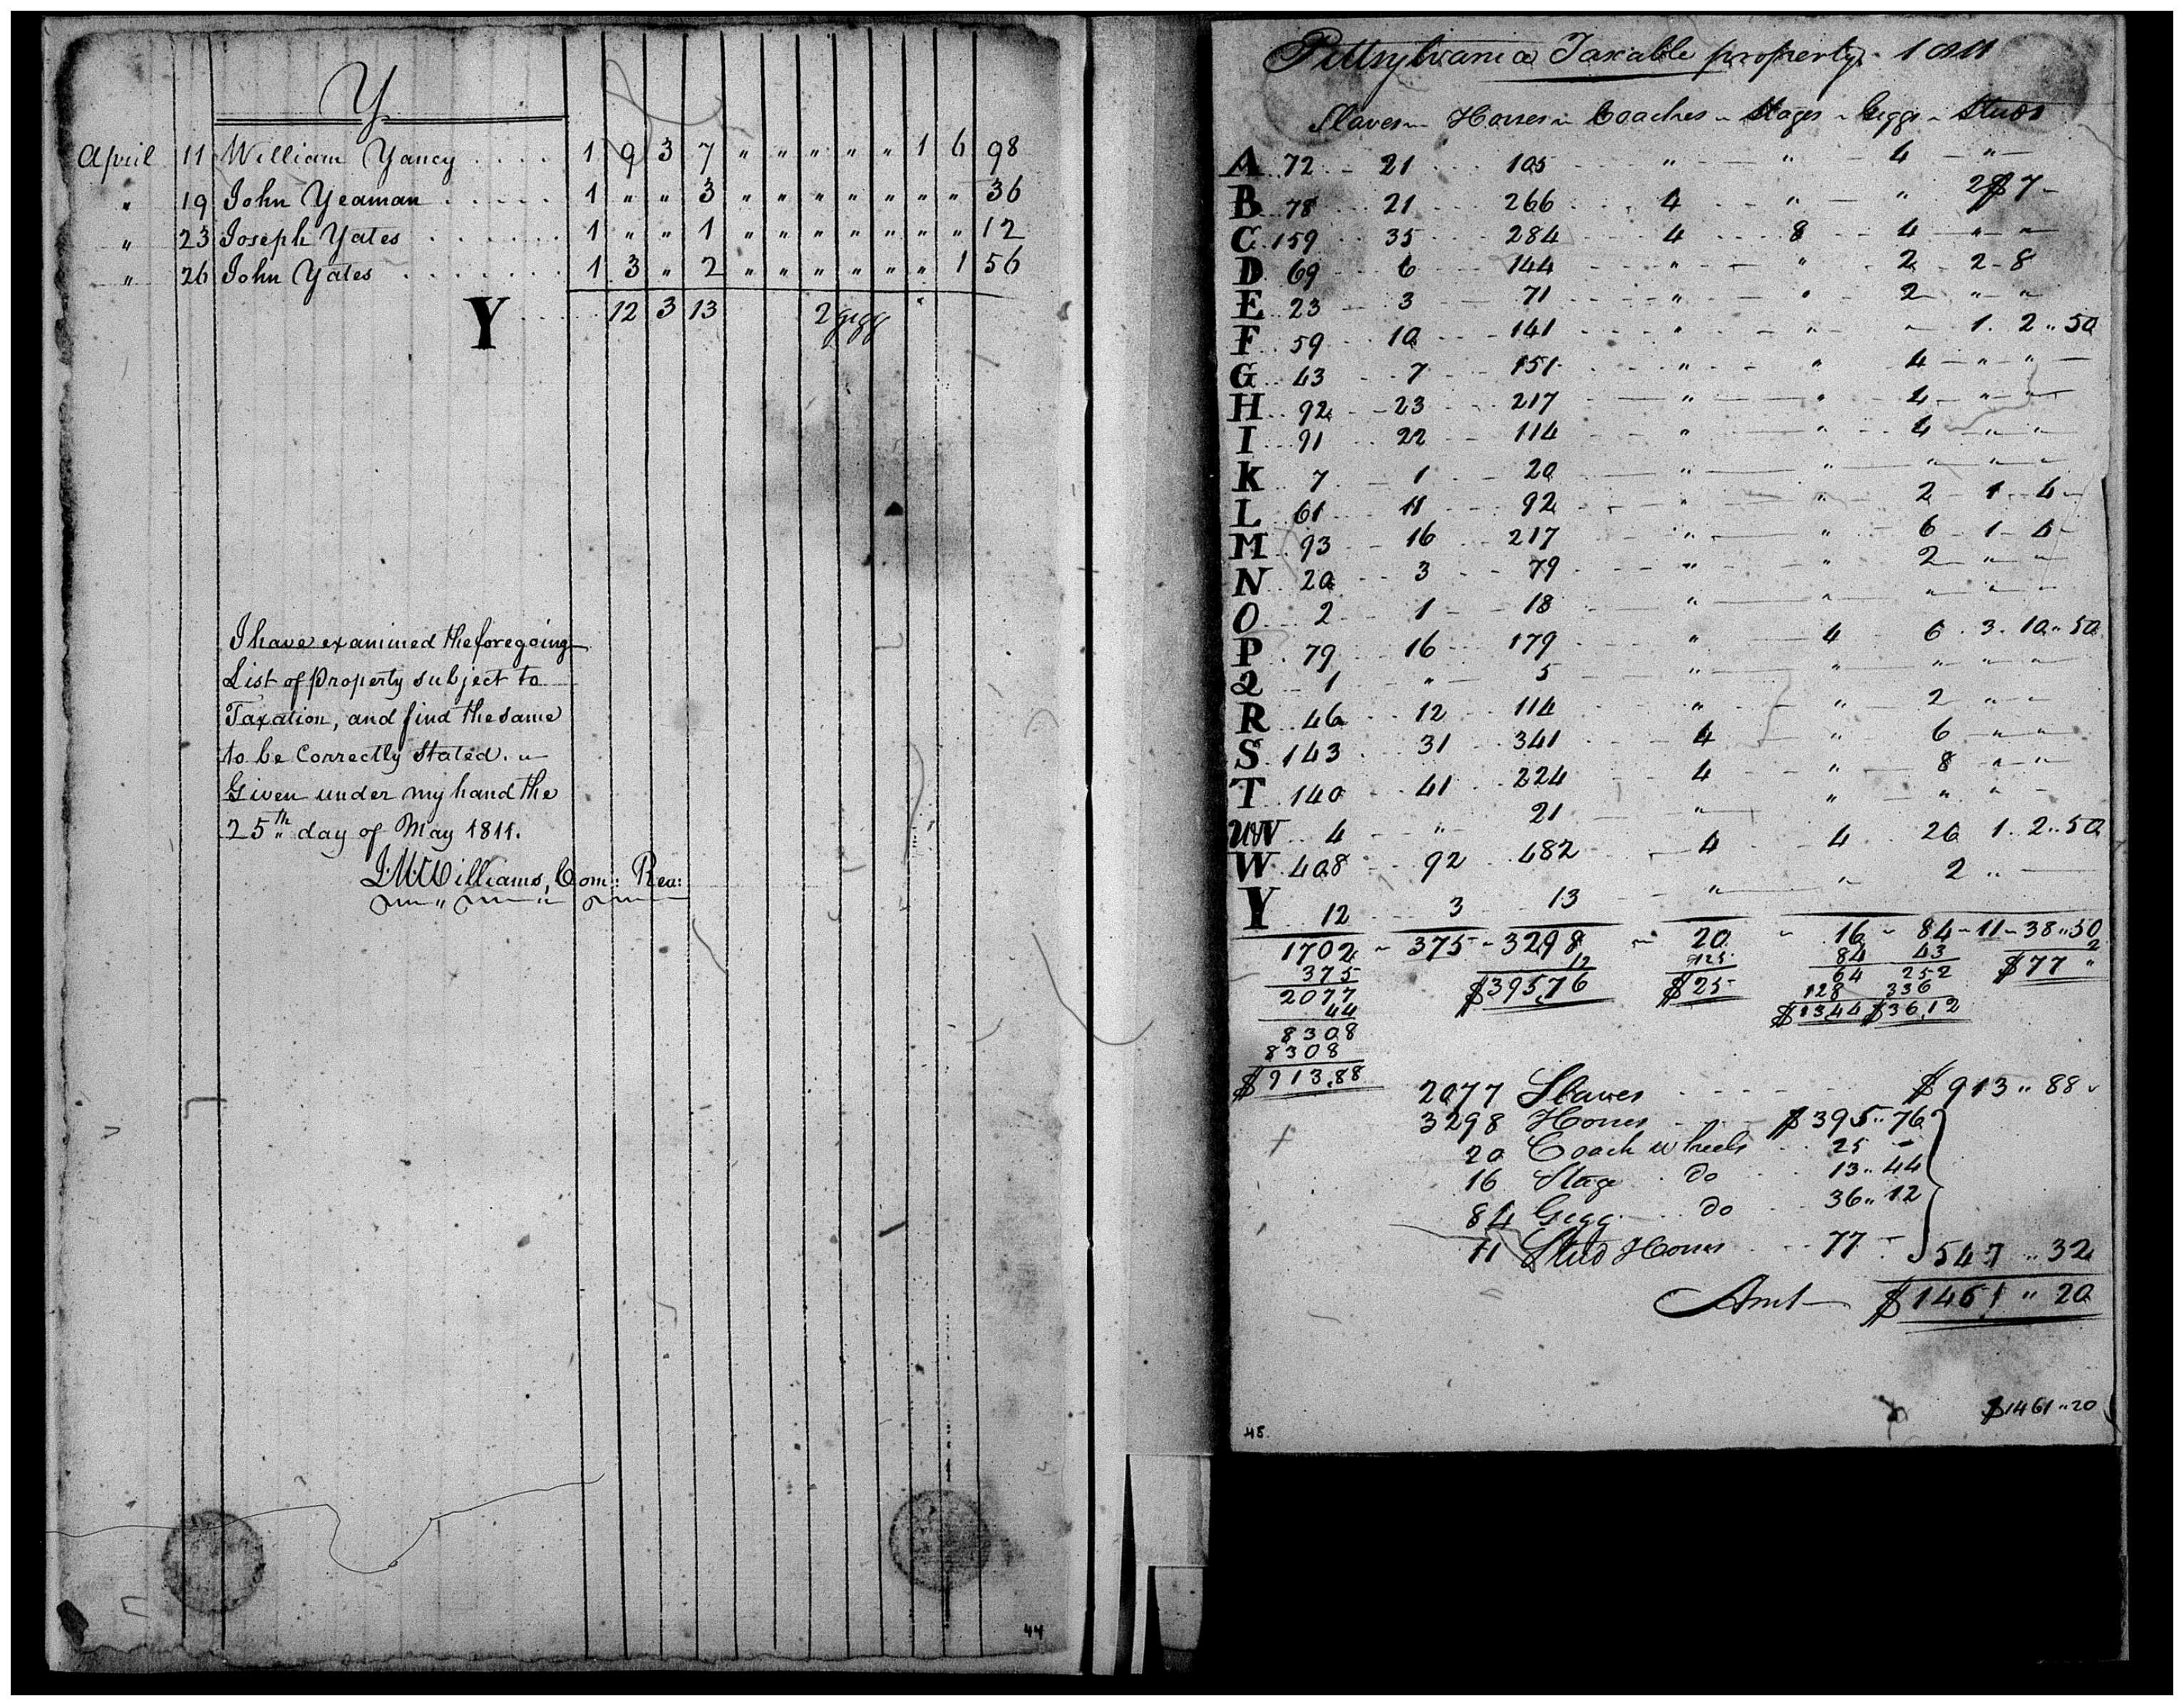 Y
April 11 William Yancy . . . . 1 9 3 7 " " " " " 1 6 98
" 19 John Yeaman . . . . . 1 " " 3 " " " " " " " 36
" 23 Joseph Yates . . . . . . 1 " " 1 " " " " " " " 12
" 26 John Yates . . . . . . . 1 3 " 2 " " " " " " 1 56
Y . . . . 12 3 13 2 gigg
I have examined the foregoing
List of Property subject to
Taxation, and find the same
to be Correctly Stated. "
Given under my hand the
25th day of May 1811.
J. McWilliams, Com: Rev:
44
Pittsylvania Taxable property 1811
Slaves " Horses " Coaches " Stages " Giggs " Studs
A 72 21 105 " " 4 "
B 78 21 266 4 " " 2 $ 7
C 159 35 284 4 8 4 " "
D 69 6 144 " " 2 2 8
E 23 3 71 " " 2 " "
F 59 10 141 " " " 1 . 2 " 50
G 43 7 151 " " 4 " "
H 92 23 217 " " 4 " "
I 91 22 114 " " 4 " "
K 7 1 20 " " " " "
L 61 11 92 " " 2 1 4
M 93 16 217 " " 6 1 4
N 20 3 79 " " 2 " "
O 2 1 18 " " " " "
P 79 16 179 " 4 6 . 3 . 10 " 50
Q 1 " 5 " " " " "
R 46 12 114 " " 2 " "
S 143 31 341 4 " 6 " "
T 140 41 224 4 " 8 " "
U&V 4 " 21 " " " "
W 408 92 482 4 4 26 1 . 2 " 50
Y 12 3 13 " " 2 "
1702 " 375 - 3298 " 20 " 16 " 84 - 11 - 38 " 50
375 12 125 84 43 2
2077 $395,76 $25 64 252 $77 "
44 128 336
8308 $13,44 $36,12
8308
$913,88
2077 Slaves $913 " 88
3298 Horses $395 " 76
20 Coach wheels 25 -
16 Stage do 13 " 44
84 Gigg do 36 " 12
11 Stud Horses 77 - 547 " 32
Amt $1461 " 20
$1461 " 20
45